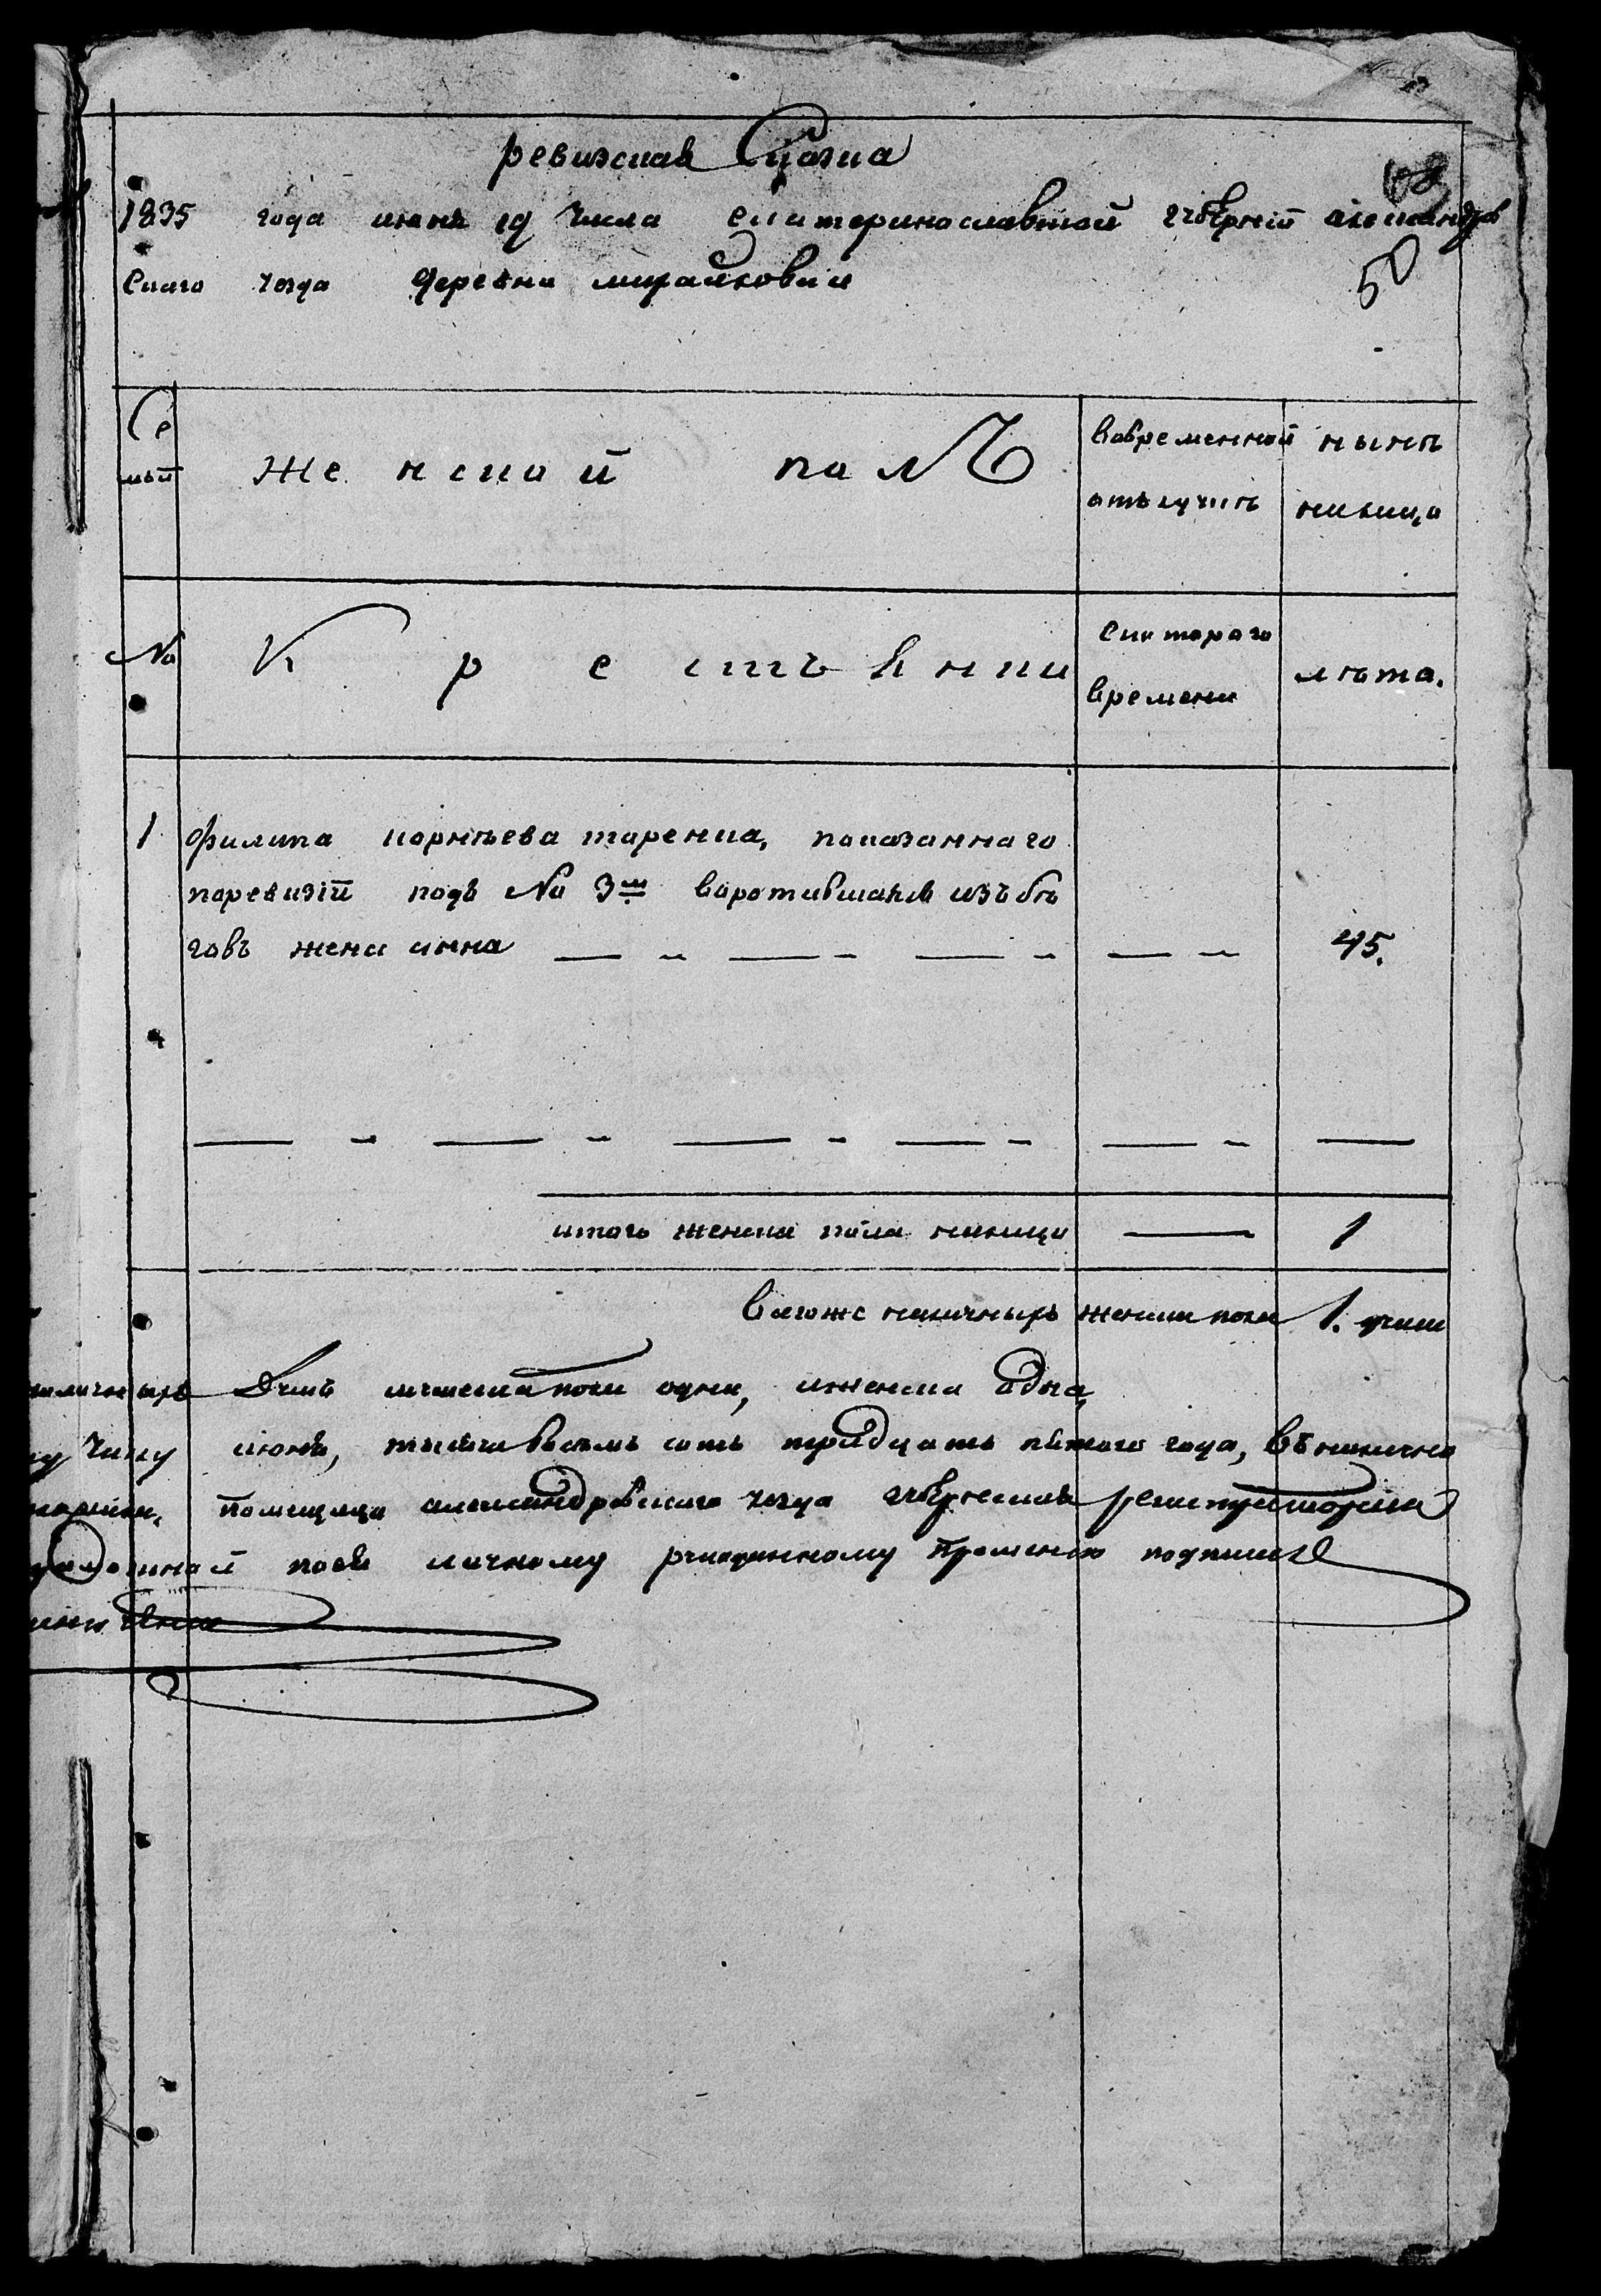 ревизская Сказка
68
1835 года июня 19 числа екатеринославской губерніи александров
скаго уезда деревни михайловки
50
Се
мьи
женской полЪ
вовременной
отълучкѣ
нынѣ
налицо
No
крестьянки
скотораго
времени
лѣта.
1 филипа корнѣева таренка, показаннаго
поревизіи подъ No 3м воротившаяся изъ бѣ
говъ жена анна — - — - — - — - 45.
— - — - — - — - — - —
итого женска пола налицо — 1
всегоже наличныхъ женска пола 1. душа
наличныхъ душъ мужеска пола одна, аженска одна,
июня, тысяча восемь сотъ тридцать пятого года, Въ
помещица александровскаго уезда губернская регистраторша
по ея личному рукоданному прошенію подписа